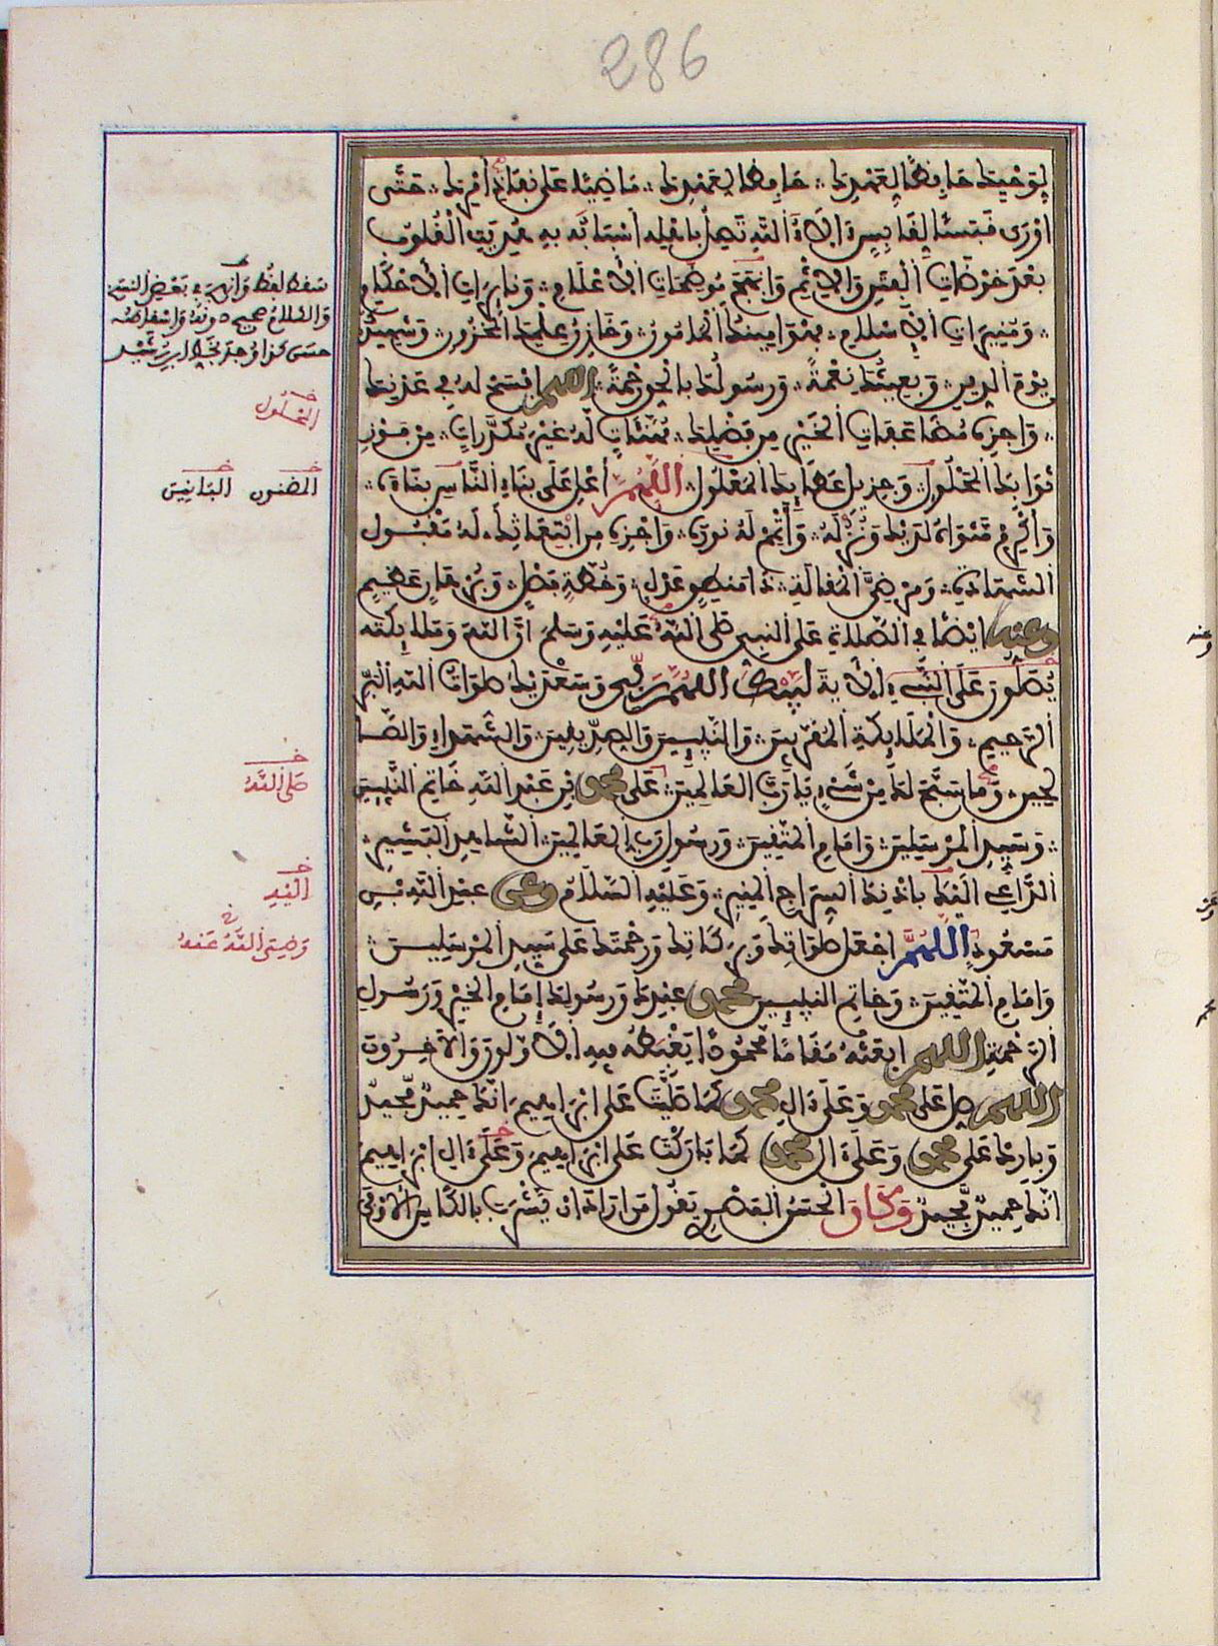 286
لِوَحْيِكَ حَافِظًا لِعَهْدِكَ حَافِظًا لِعَهْدِكَ مَاضِيًا عَلَى نَفَاذِ أَمْرِكَ حَتَّى
أَوْرَى قَبَسًا لِقَابِسٍ آلَاءُ اللَّهِ تَصِلُ بِأَهْلِهِ أَسْبَابَهُ بِهِ هُدِيَتِ الْقُلُوبُ
بَعْدَ خَوْضَاتِ الْفِتَنِ وَالْإِثْمِ وَأَبْهَجَ مُوضِحَاتِ الْأَعْلَامِ وَنَائِرَاتِ الْأَحْكَامِ
وَمُنِيرَاتِ الْإِسْلَامِ فَهُوَ أَمِينُكَ الْمَأْمُونُ وَخَازِنُ عِلْمِكَ الْمَخْزُونِ وَشَهِيدُكَ
يَوْمَ الدِّينِ وَبَعِيثُكَ نِعْمَةً وَرَسُولُكَ بِالْحَقِّ رَحْمَةً اللهم افْسَحْ لَهُ فِي عَدْنِكَ
وَاجْزِهِ مُضَاعَفَاتِ الْخَيْرِ مِن فَضْلِكَ مُهَنَّئَاتٍ لَهُ غَيْرَ مُكَدَّرَاتٍ مِنْ فَوْزِ
ثَوَابِكَ الْمَحْلُولِ وَجَزِيلِ عَطَائِكَ الْمَعْلُولِ اللَّهُمَّ أَعْلِ عَلَى بِنَاءِ النَّاسِ بِنَاءَهُ
وَأَكْرِمْ مَثْوَاهُ لَدَيْكَ وَنُزُلَهُ وَأَتْمِمْ لَهُ نُورَهُ وَاجْزِهِ مِنِ ابْتِعَاثِكَ لَهُ مَقْبُولَ
الشَّهَادَةِ وَمَرْضِيَّ الْمَقَالَةِ ذَا مَنطِقٍ عَدْلٍ وَخُطَّةٍ فَصْلٍ وَبُرْهَانٍ عَظِيمٍ
وعنه أَيْضًا فِي الصَّلَاةِ عَلَى النَّبِيِّ صَلَّى اللَّهُ عَلَيْهِ وَسَلَّمَ إِنَّ اللَّهَ وَمَلَائِكَتَهُ
يُصَلُّونَ عَلَى النَّبِيِّ الْآيَةَ لَبَّيْكَ اللهُمَّ رَبِّي وَسَعْدَيْكَ صَلَوَاتُ اللَّهِ الْبَرِّ
الرَّحِيمِ وَالْمَلَائِكَةِ الْمُقَرَّبِينَ وَالنَّبِيئِينَ وَالصِّدِّيقِينَ وَالشُّهَدَاءِ وَالصَّا
لِحِينَ وَمَا سَبَّحَ لَكَ مِنْ شَيْءٍ يَا رَبَّ الْعَالَمِينَ عَلَى محمد بْنِ عَبْدِ اللَّهِ خَاتِمِ النَّبِيئِينَ
وَسَيِّدِ الْمُرْسَلِينَ وَإِمَامِ الْمُتَّقِينَ وَرَسُولِ رَبِّ الْعَالَمِينَ الشَّاهِدِ الْبَشِيرِ
الدَّاعِي إِلَيْكَ بِإِذْنِكَ السِّرَاجِ الْمُنِيرِ وَعَلَيْهِ السَّلَامُ وعن عَبْدِ اللَّهِ بْنِ
مَسْعُودٍ اللَّهُمَّ اجْعَلْ صَلَوَاتِكَ وَبَرَكَاتِكَ وَرَحْمَتَكَ عَلَى سَيِّدِ الْمُرْسَلِينَ
وَإِمَامِ الْمُتَّقِينَ وَخَاتِمِ النَّبِيئِينَ محمد عَبْدِكَ وَرَسُولِكَ إِمَامِ الْخَيْرِ وَرَسُولِ
الرَّحْمَةِ اللهم ابْعَثْهُ مَقَامًا مَحْمُودًا يَغْبِطُهُ فِيهِ الْأَوَّلُونَ وَالْآخِرُونَ
اللهم صَلِّ عَلَى محمد وَعَلَى آلِ محمد كَمَا صَلَّيْتَ عَلَى إِبْرَاهِيمَ إِنَّكَ حَمِيدٌ مَّجِيدٌ
وَبَارِكْ عَلَى محمد وَعَلَى آلِ محمد كَمَا بَارَكْتَ عَلَى إِبْرَاهِيمَ وَعَلَى آلِ إِبْرَاهِيمَ
إِنَّكَ حَمِيدٌ مَّجِيدٌ وَكَانَ الْحَسَنُ الْبَصْرِي يَقُولُ مَنْ أَرَادَ أَنْ يَشْرَبَ بِالْكَأْسِ الْأَوْفَى
سقط لفظ وَأَبْهَجَ في بَعْضِ النسخ
وَالكلامُ صحيح دونهُ وَإسقاطه
المحلول
المضنون البانين
صَلَّى اللَّهُ
إليه
رَضِيَ اللَّهُ عَنهُ